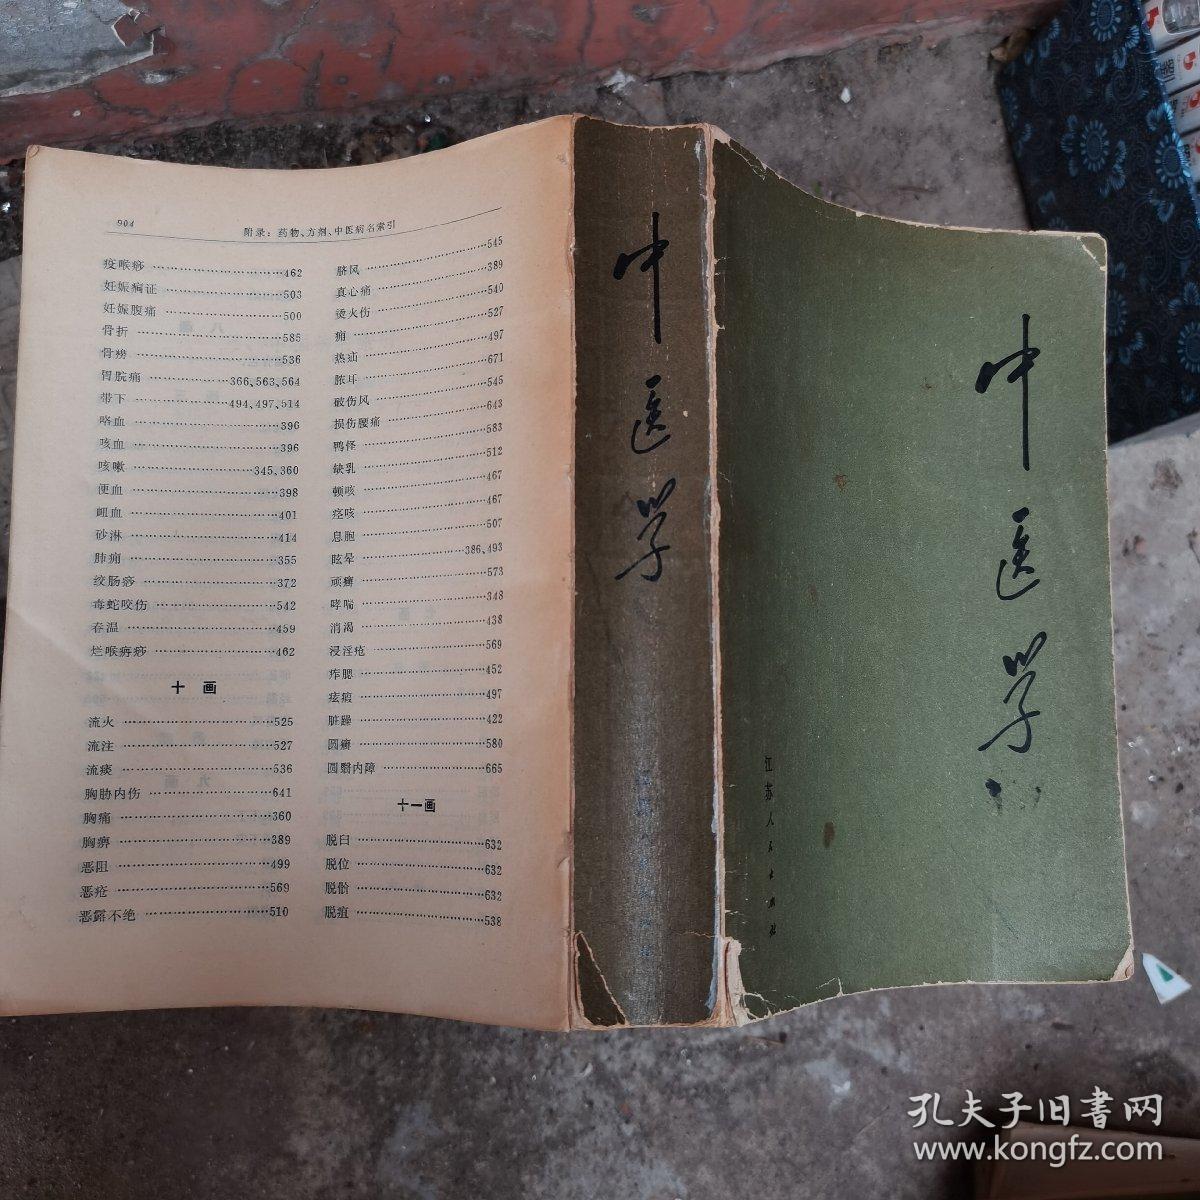 904
附录：药物、方剂、中医病名索引
疫喉痧 462
妊娠痫证 503
妊娠腹痛 500
骨折 585
骨痨 536
胃脘痛 366、563、564
带下 494、497、514
咯血 396
咳血 396
咳嗽 345、360
便血 398
衄血 401
砂淋 414
肺痈 355
绞肠痧 372
毒蛇咬伤 542
春温 459
烂喉痹痧 462
十画
流火 525
流注 527
流痰 536
胸胁内伤 641
胸痛 360
胸痹 389
恶阻 499
恶疮 569
恶露不绝 510
脐风 545
真心痛 389
烫火伤 540
痈 527
热疝 497
脓耳 671
破伤风 545
损伤腰痛 643
鸭怪 583
缺乳 512
顿咳 467
痉咳 467
息胞 507
眩晕 386、493
顽癣 573
哮喘 348
消渴 438
浸淫疮 569
痄腮 452
痃瘕 497
脏躁 422
圆癣 580
圆翳内障 665
十一画
脱臼 632
脱位 632
脱骱 632
脱疽 538
中医学
中医学
江苏人民出版社
孔夫子旧書网
www.kongfz.com